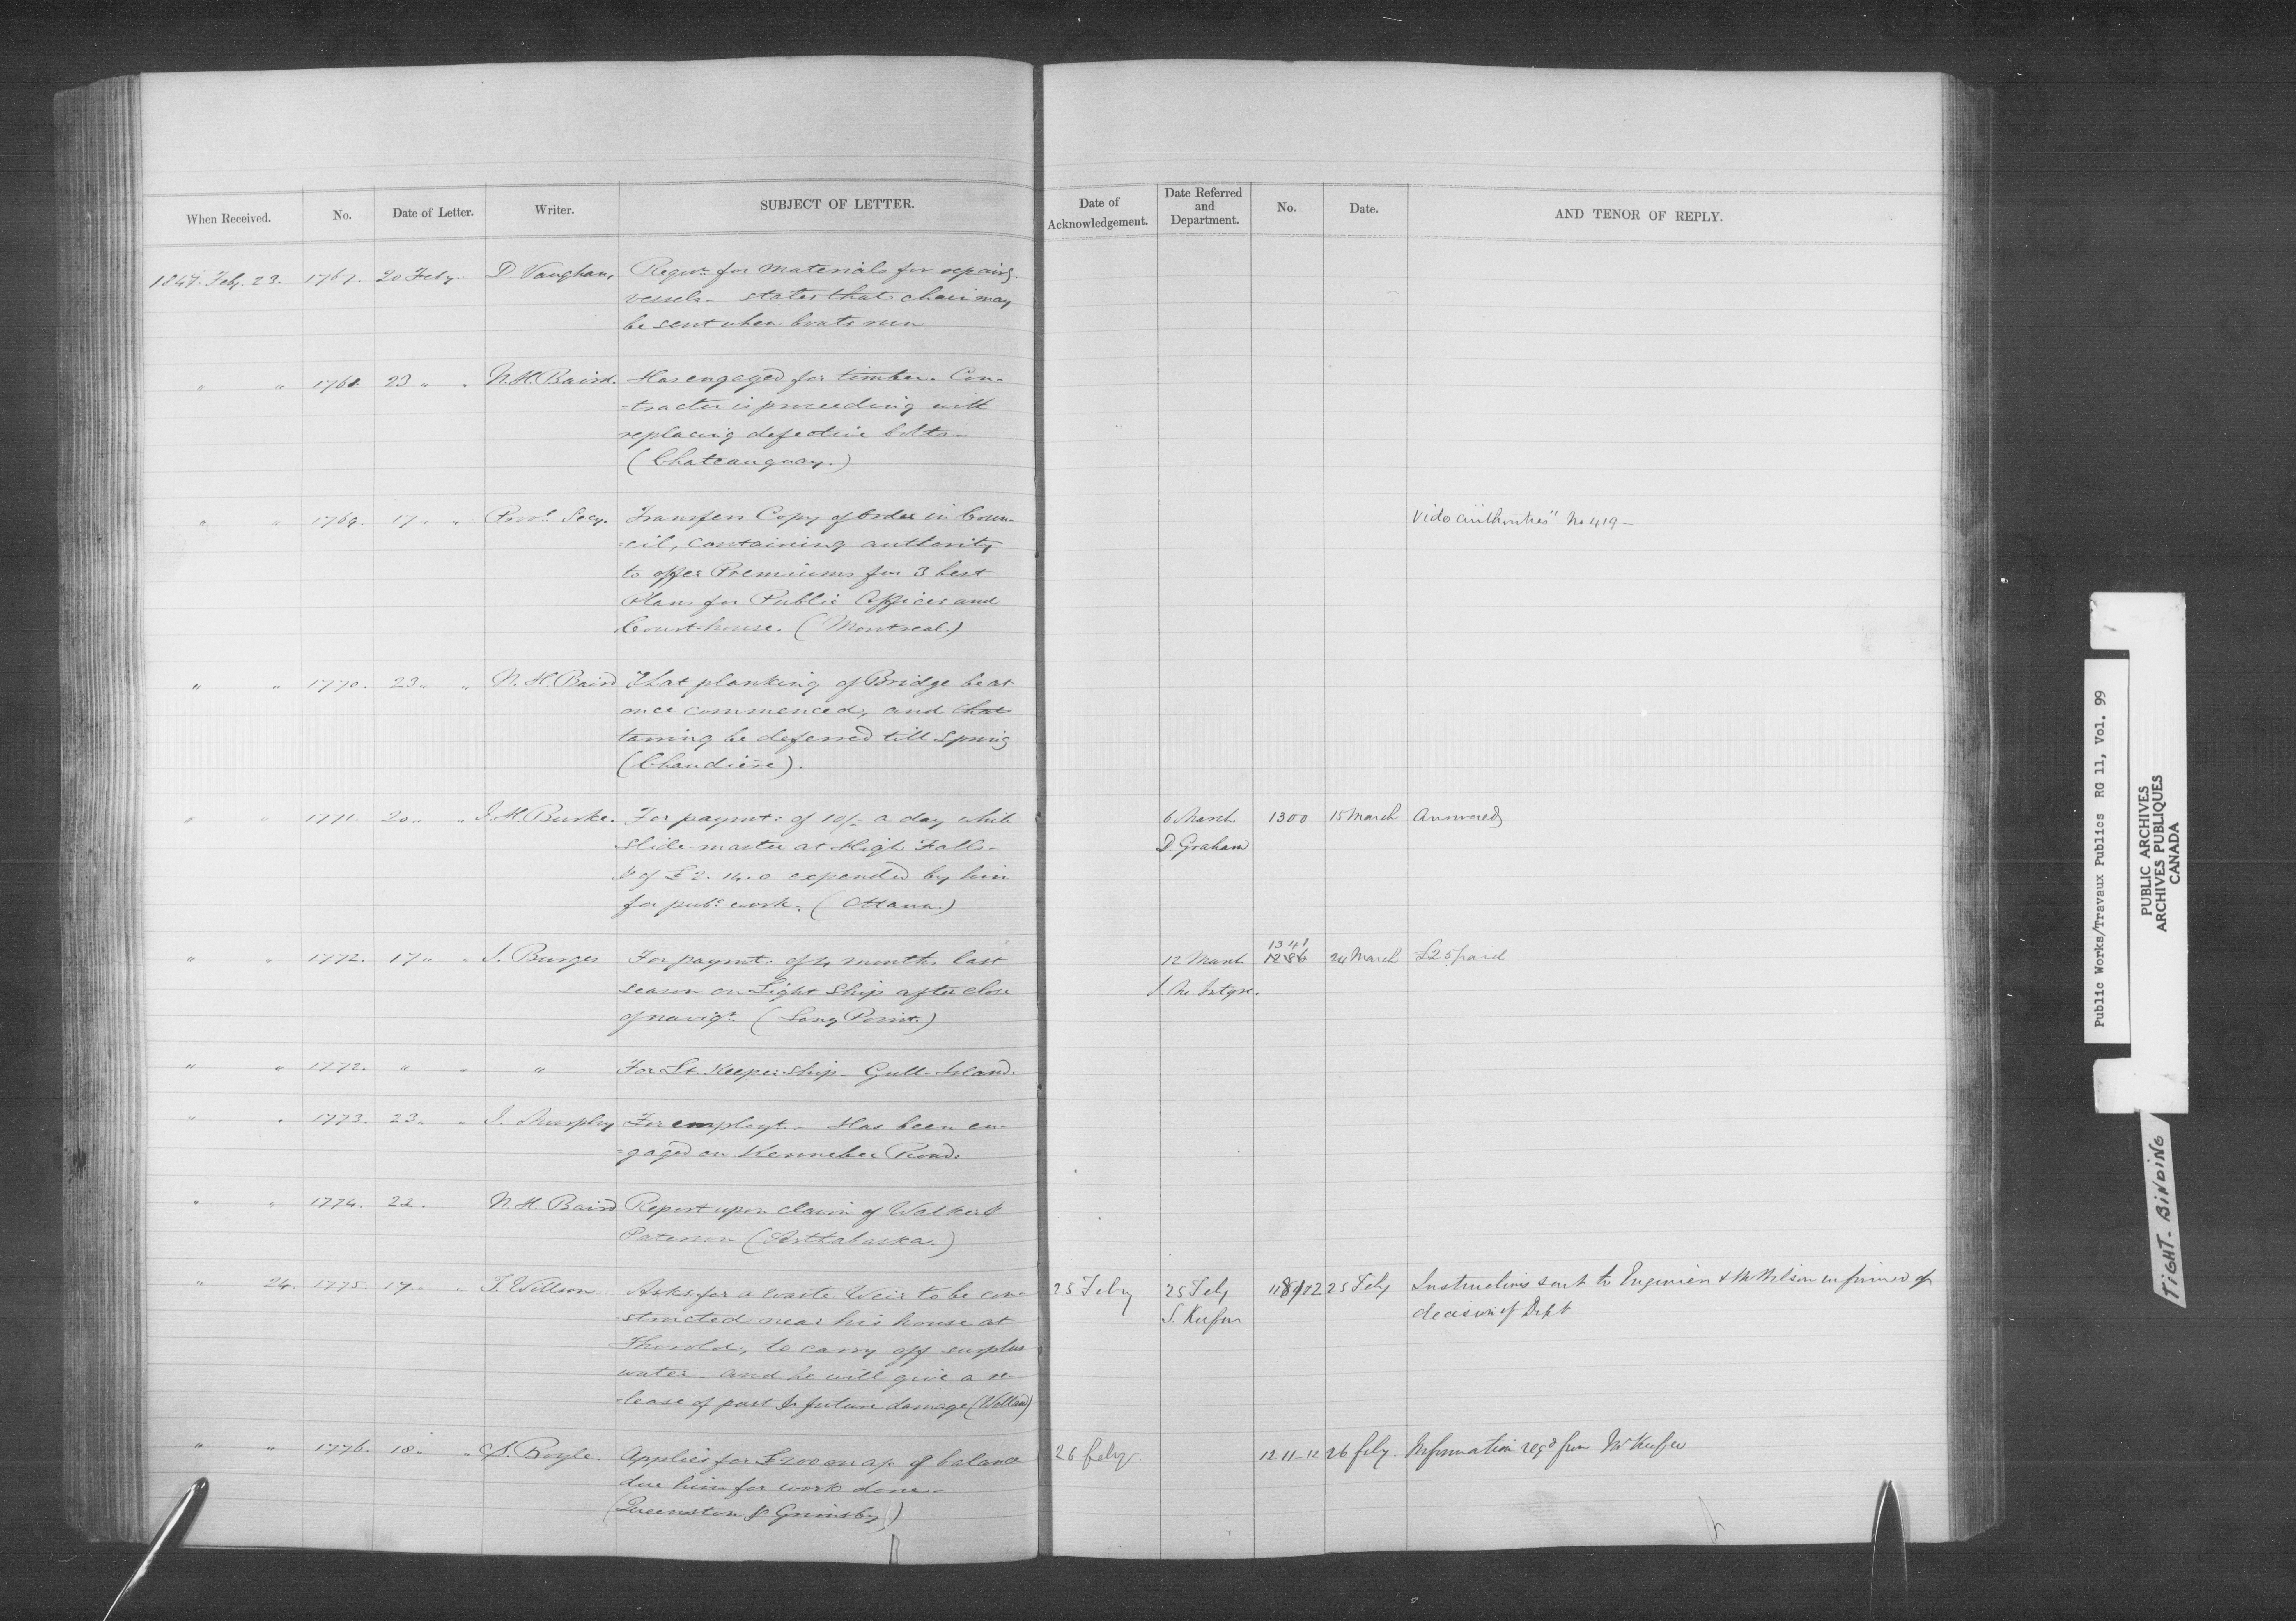 When Received. No. Date of Letter. Writer. SUBJECT OF LETTER.
1847. Feby. 23. 1767. 20 Feby. D. Vaughan, Reqn. for materials for repairg.
vessels - states that chain may
be sent when boats run
" " 1768. 23 " " N. H. Baird. Has engaged for timber. Con-
-tractor is proceeding with
replacing defective bolts -
(Chateauguay.)
" " 1769. 17 " " Provl. Secy. Transfers Copy of Order in Coun-
-cil, containing authority
to offer Premiums for 3 best
Plans for Public Offices and
Court-house. (Montreal.)
" " 1770. 23 " " N. H. Baird That planking of Bridge be at
once commenced, and that
tarring be deferred till Spring
(Chaudière).
" " 1771. 20 " " J. H. Burke. For paymt: of 10/- a day while
Slide-master at High Falls -
& of £2.14.0 expended by him
for pub: work. (Ottawa.)
" " 1772. 17 " " J. Burges For paymt: of 4 months last
season on Light Ship after close
of navign. (Long Point.)
" " 1772. " " " For Lt. Keepership - Gull-Island.
" " 1773. 23 " " J. Murphy For employt. - Has been en-
-gaged on Kennebec Road.
" " 1774. 22. N. H. Baird Report upon claim of Walker &
Paterson (Arthabaska.)
" 24. 1775. 17 " " T. Willson Asks for a waste Weir to be con-
structed near his house at
Thorold, to carry off surplus
water - and he will give a re-
-lease of past & future damage (Welland)
" " 1776. 18 " " S. Boyle. Applies for £200 on a/c of balance
due him for work done -
(Queenston & Grimsby)
Date of Acknowledgement. Date Referred and Department. No. Date. AND TENOR OF REPLY.
Vide authorities" No 419 -
6 March 1300 15 March Answered
D. Graham
1341
12 March 1286 24 March £25 paid
J. McIntyre.
25 Feby 25 Feby 25 Feby Instructions sent to Engineer & Mr Wilson informed of
S. Keefer decision of Dept
26 feby 1211-12 26 feby. Information reqd from Mr Keefer
Public Works/Travaux Publics RG 11, Vol. 99
PUBLIC ARCHIVES
ARCHIVES PUBLIQUES
CANADA
TIGHT-BINDING